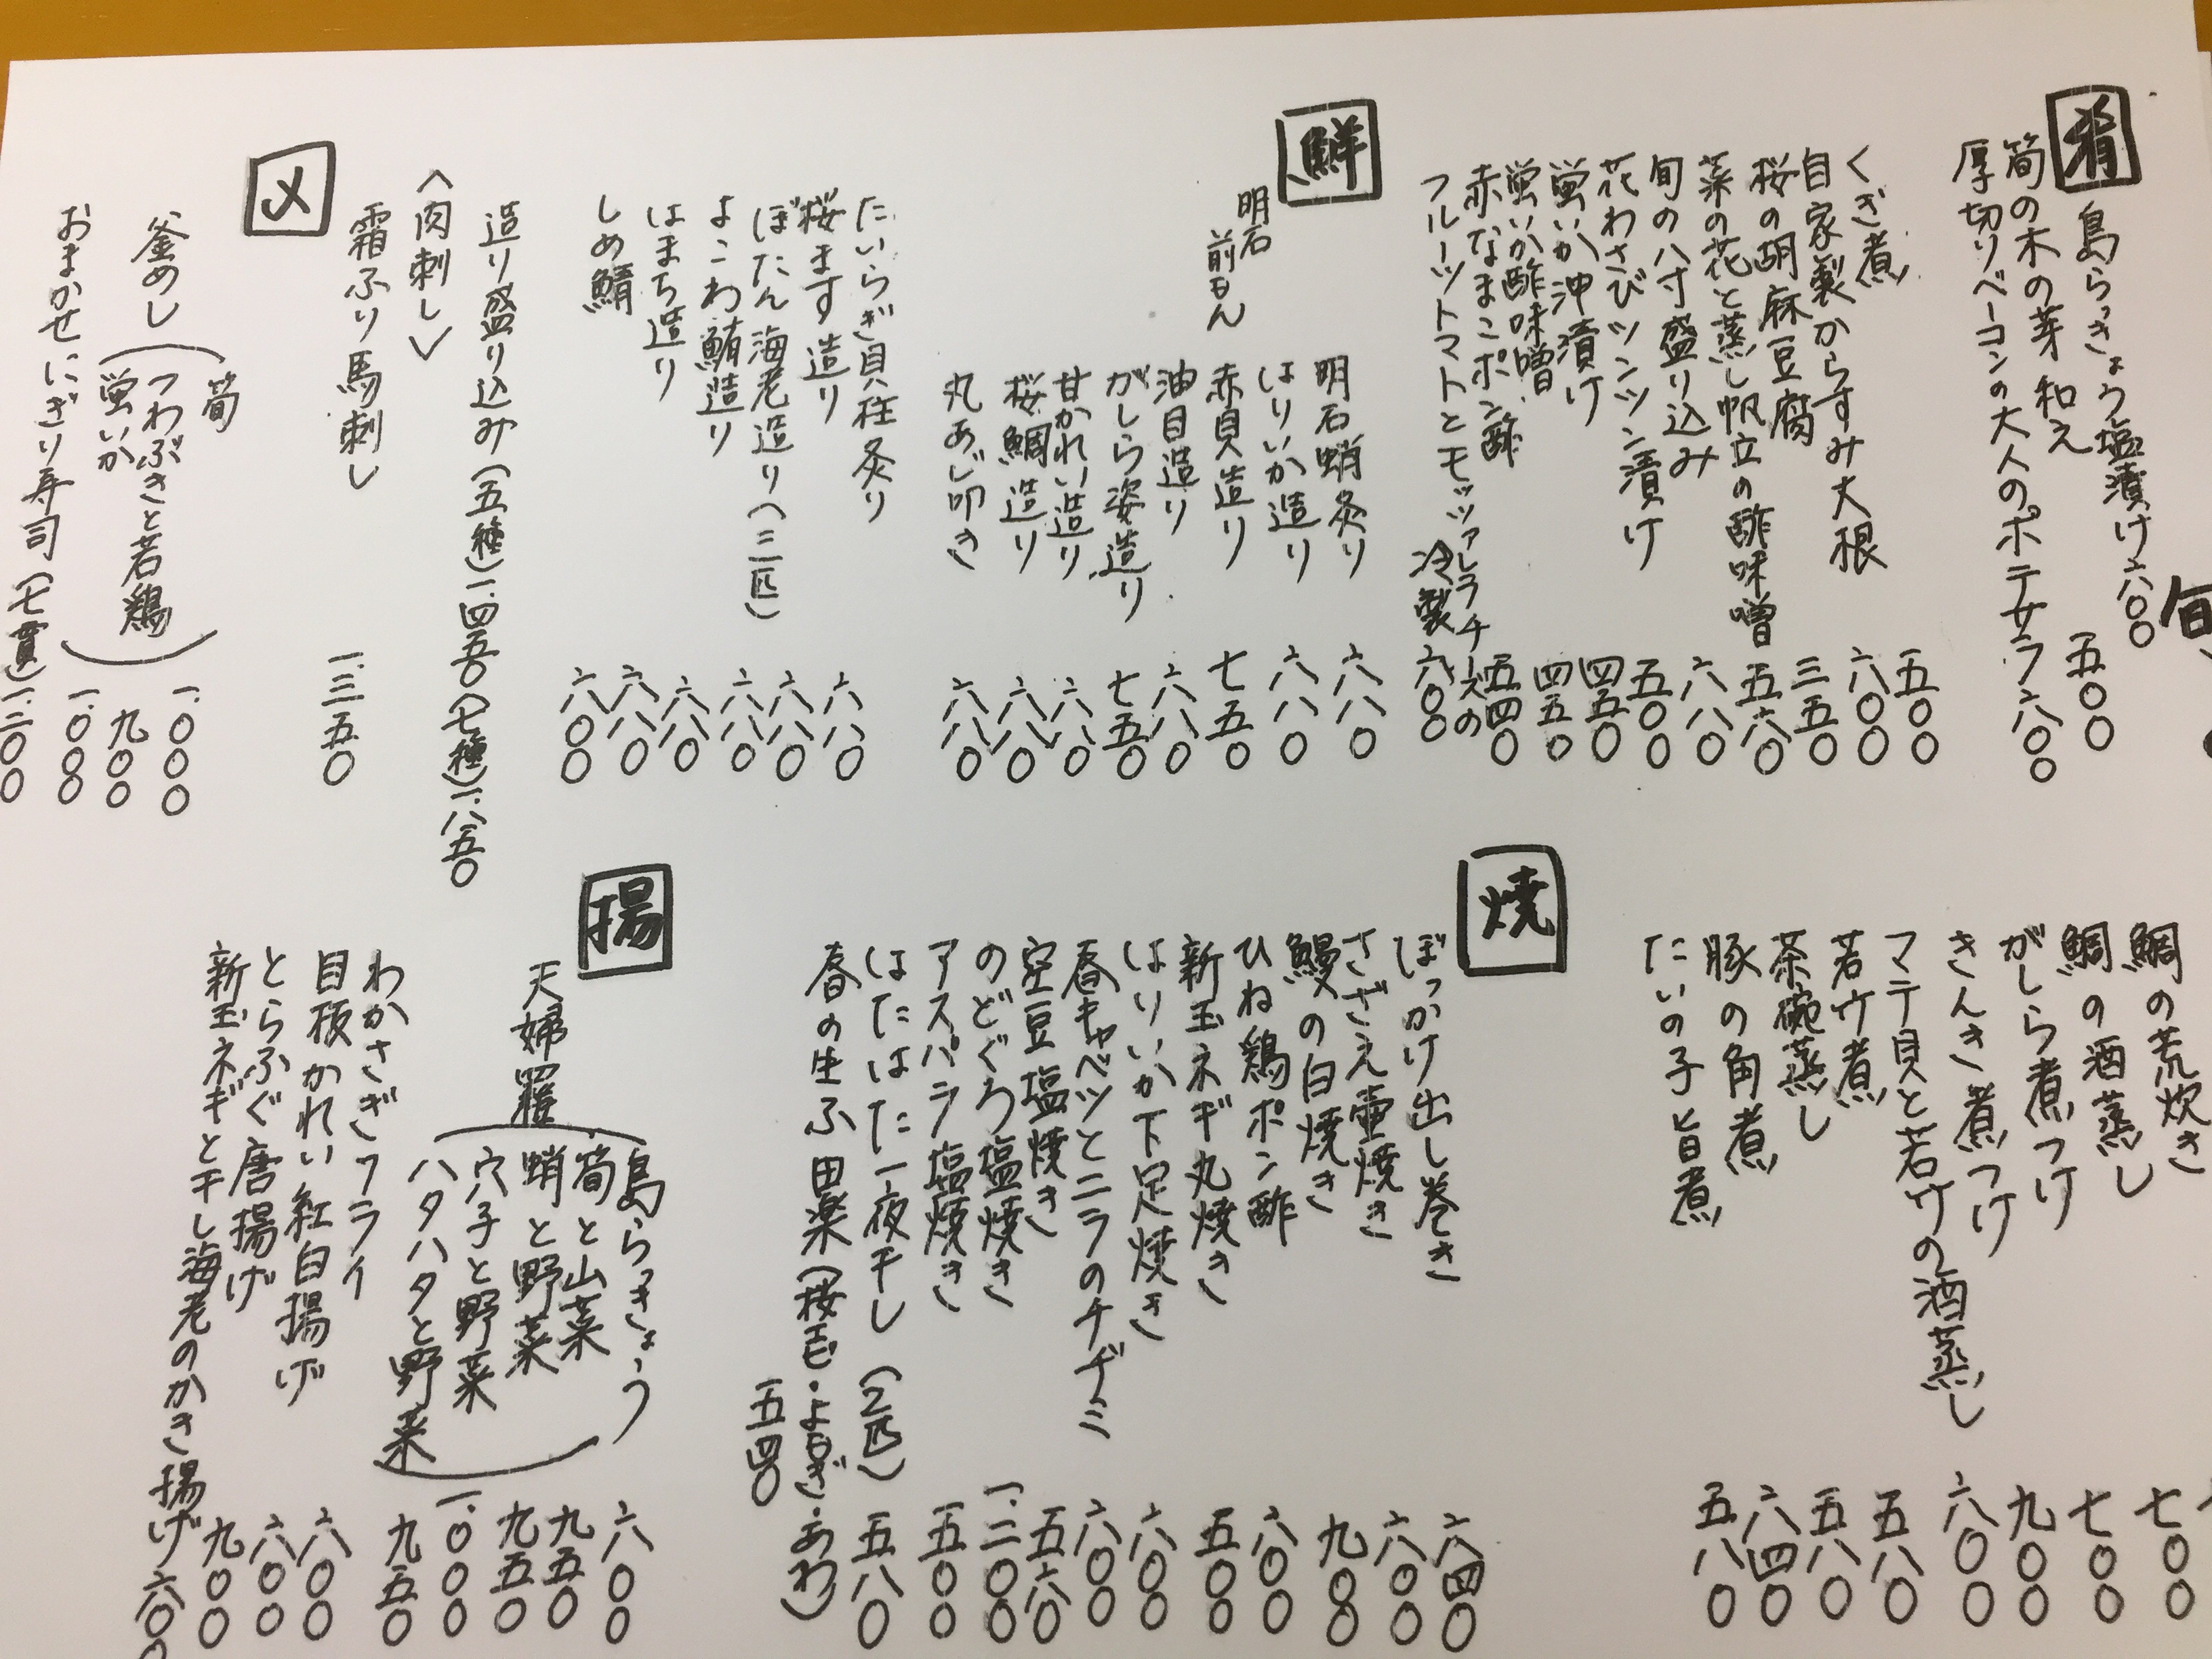 旬
肴
島らっきょう塩漬け 六〇〇
筍の木の芽和え 五〇〇
厚切りベーコンの大人のポテサラ 六〇〇
くぎ煮 五〇〇
自家製からすみ大根 六〇〇
桜の胡麻豆腐 三五〇
菜の花と蒸し帆立の酢味噌 五八〇
旬の八寸盛り込み 六八〇
花わさびツンツン漬け 五〇〇
蛍いか沖漬け 四五〇
蛍いか酢味噌 四五〇
赤なまこポン酢 五四〇
フルーツトマトとモッツァレラチーズの
冷製 六〇〇
鮮
明石
前もん
明石蛸炙り 六八〇
はりいか造り 六八〇
赤貝造り 七五〇
油目造り 六八〇
がしら姿造り 七五〇
甘かれい造り 六八〇
桜鯛造り 六八〇
丸あじ叩き 六八〇
たいらぎ貝柱炙り 六八〇
桜ます造り 六八〇
ぼたん海老造り(三匹) 六八〇
よこわ鮪造り 六八〇
はまち造り 六八〇
しめ鯖 六〇〇
造り盛り込み(五種)一.四五〇(七種)一.八五〇
<肉刺し>
霜ふり馬刺し 一.三五〇
〆
釜めし
筍 一.〇〇〇
つわぶきと若鶏 九〇〇
蛍いか 一.〇〇〇
おまかせにぎり寿司(七貫)一.二〇〇
鯛の荒炊き
鯛の酒蒸し 七〇〇
がしら煮つけ 七〇〇
きんき煮つけ 九〇〇
マテ貝と若竹の酒蒸し 六〇〇
若竹煮 五八〇
茶碗蒸し 五八〇
豚の角煮 六四〇
たいの子旨煮 五八〇
焼
ぼっかけ出し巻き 六四〇
さざえ壷焼き 六〇〇
鰻の白焼き 九〇〇
ひね鶏ポン酢 六〇〇
新玉ネギ丸焼き 五〇〇
はりいか下足焼き 六〇〇
春キャベツとニラのチヂミ 六〇〇
空豆塩焼き 五六〇
のどぐろ塩焼き 一.二〇〇
アスパラ塩焼き 五〇〇
はたはた一夜干し(2匹) 五八〇
春の生ふ田楽(桜・よもぎ・あわ)
五四〇
揚
天婦羅
島らっきょう 六〇〇
筍と山菜 九五〇
蛸と野菜 九五〇
穴子と野菜 一.〇〇〇
ハタハタと野菜 九五〇
わかさぎフライ 六〇〇
目板かれい紅白揚げ 六〇〇
とらふぐ唐揚げ 九〇〇
新玉ネギと干し海老のかき揚げ 六〇〇